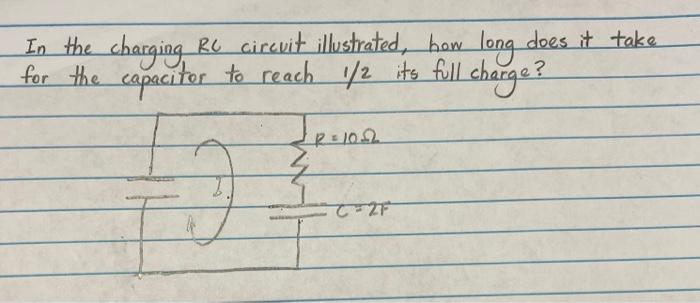 In the charging RC circuit illustrated, how long does it take
for the capacitor to reach 1/2 its full charge?
R=10Ω
C=2F